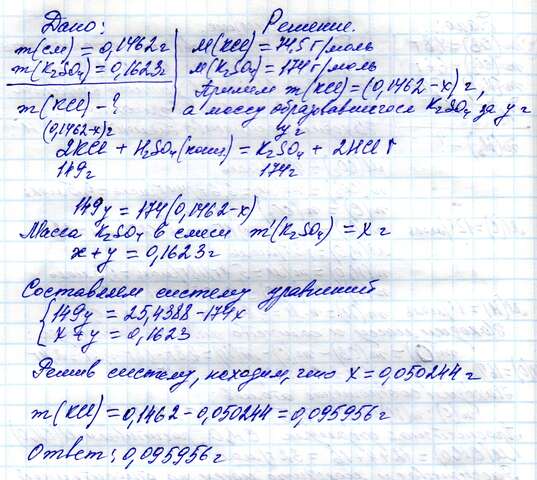 Дано:
m(см) = 0,1462г
m(K₂SO₄) = 0,1623г
m(KCl) - ?
Решение.
M(KCl) = 74,5 г/моль
M(K₂SO₄) = 174 г/моль
Примем m(KCl) = (0,1462-x) г,
а массу образовавшегося K₂SO₄ за y г
(0,1462-x)г y г
2KCl + H₂SO₄(конц) = K₂SO₄ + 2HCl↑
149г 174г
149y = 174(0,1462-x)
Масса K₂SO₄ в смеси m'(K₂SO₄) = x г
x + y = 0,1623г
Составляем систему уравнений
{149y = 25,4388 - 174x
{x + y = 0,1623
Решив систему, находим, что x = 0,050244 г
m(KCl) = 0,1462 - 0,050244 = 0,095956 г
Ответ: 0,095956 г